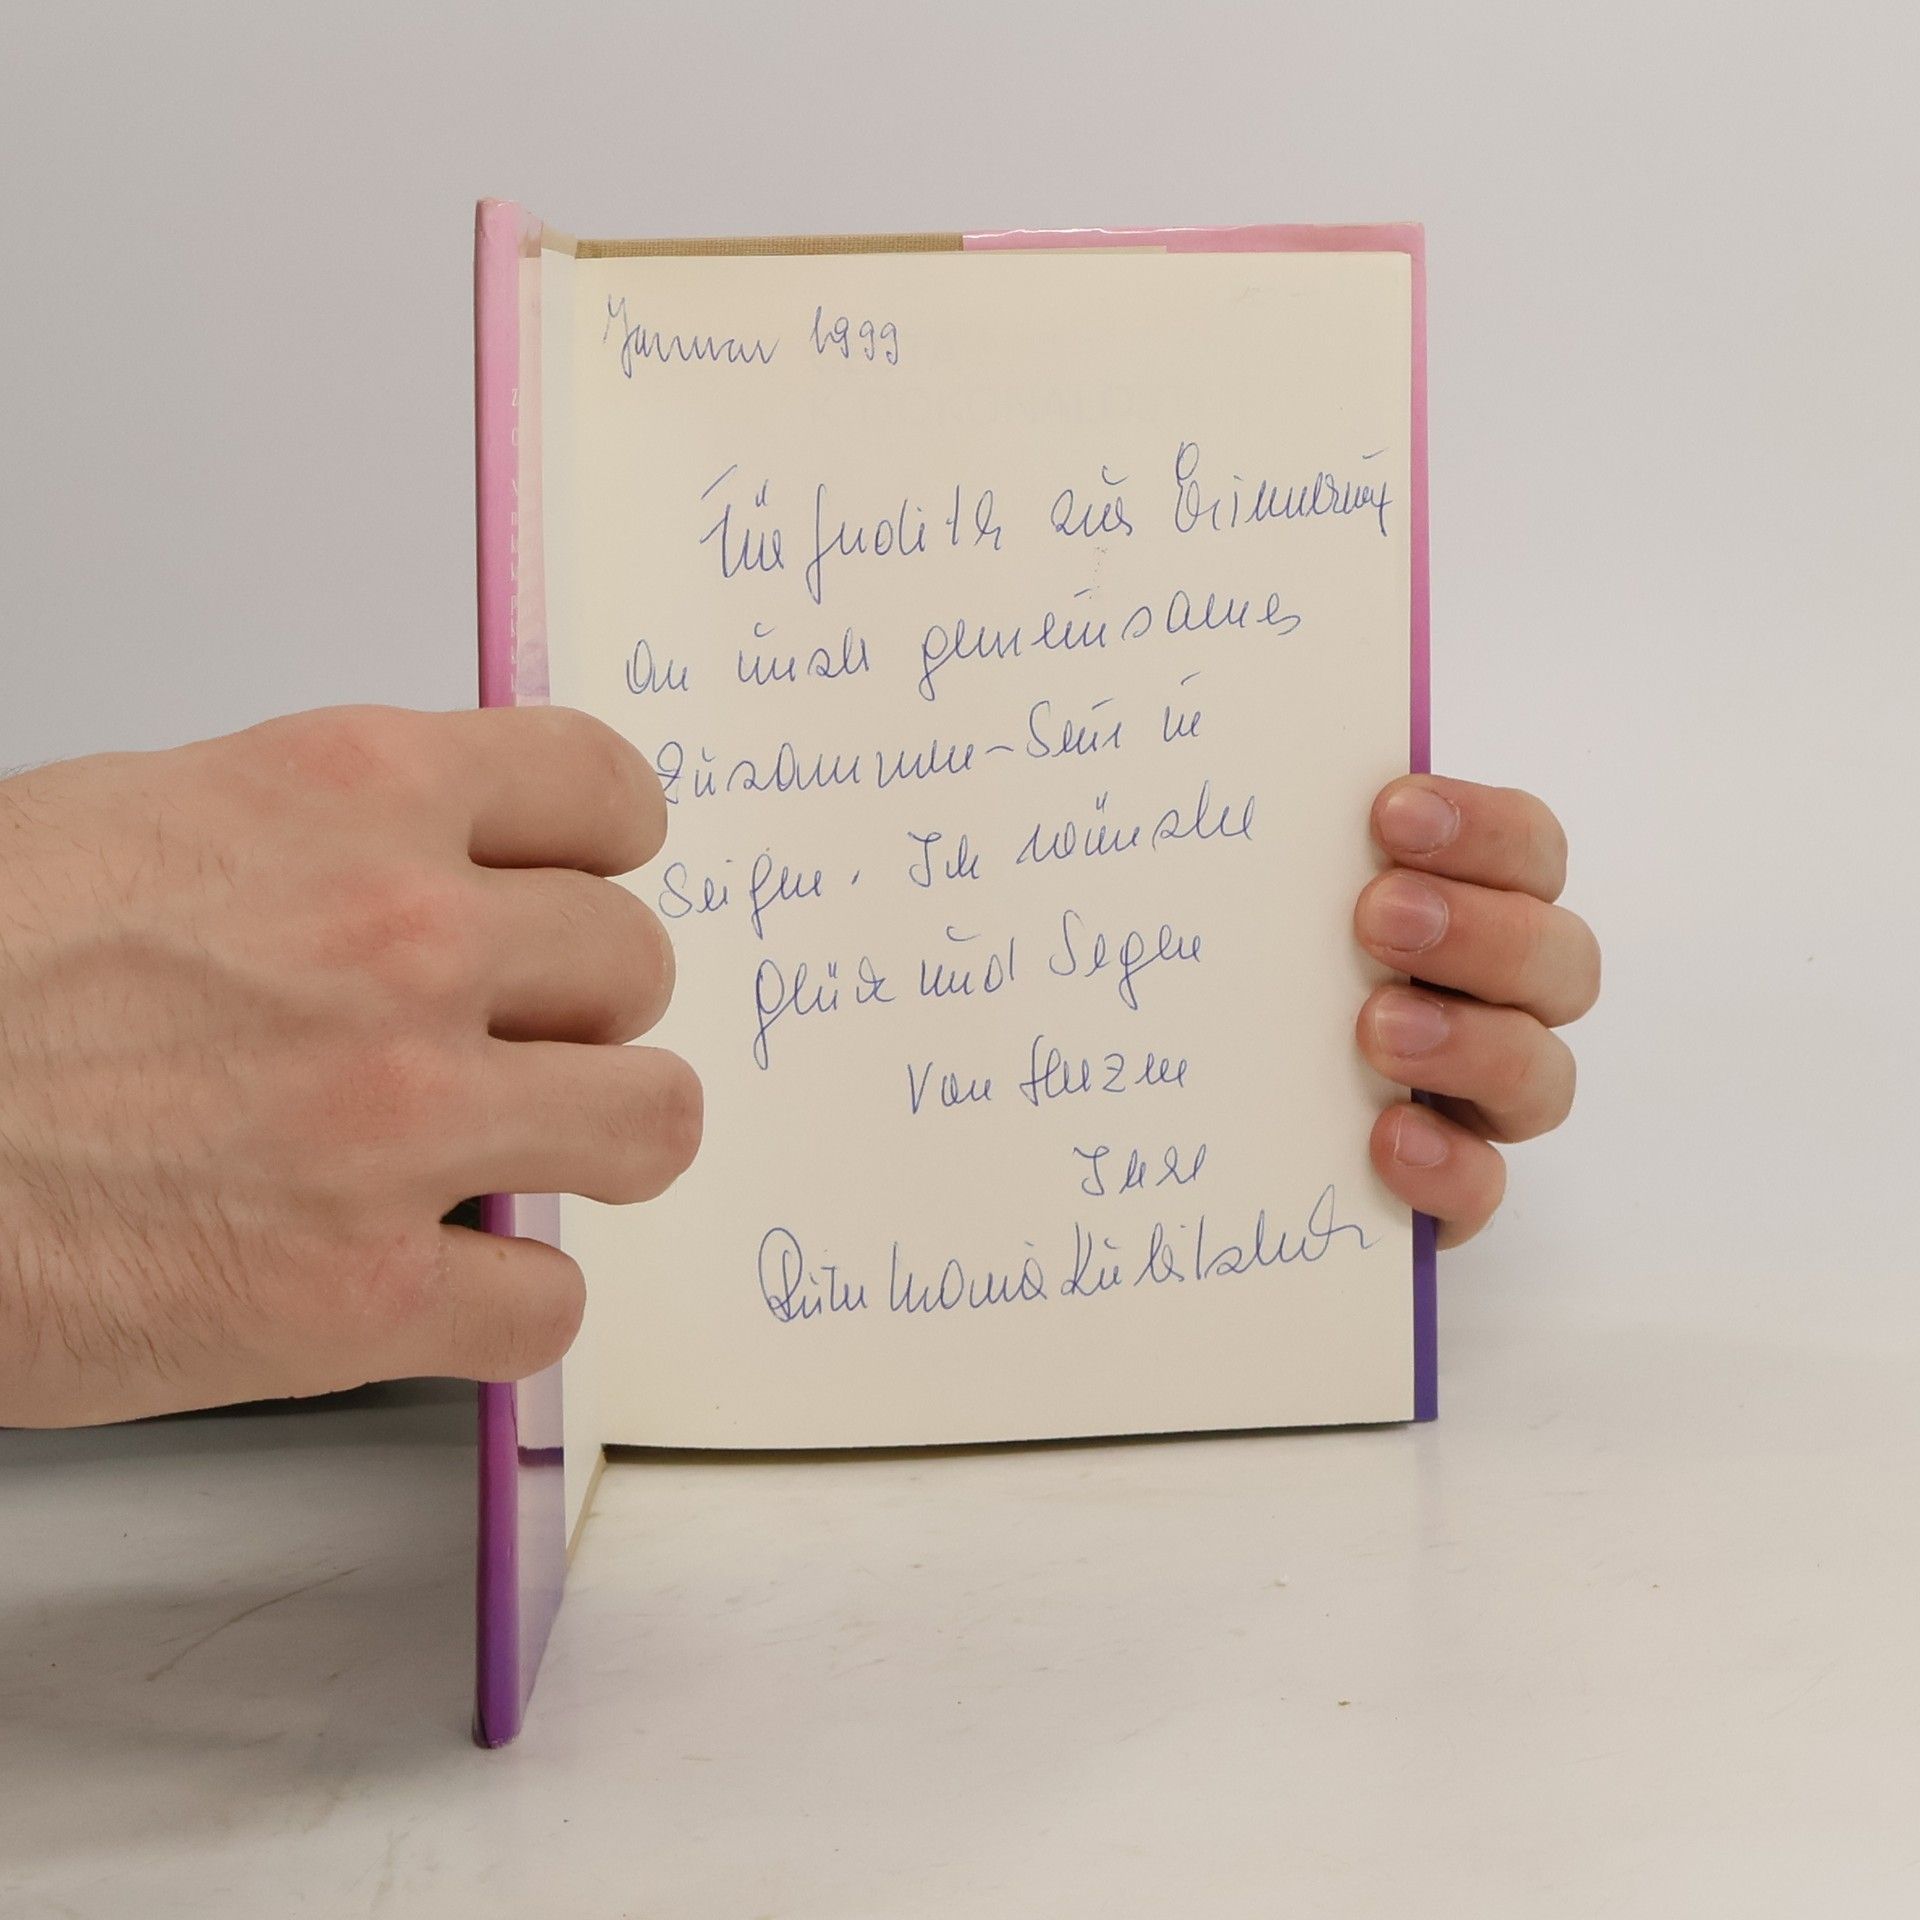 Januar 1999
Für Judith zur Erinnerung
an unser gemeinsames
Zusammen-Sein in
Ich wünsche
Glück und Segen
Von Herzen
Ihre
Ruth Maria